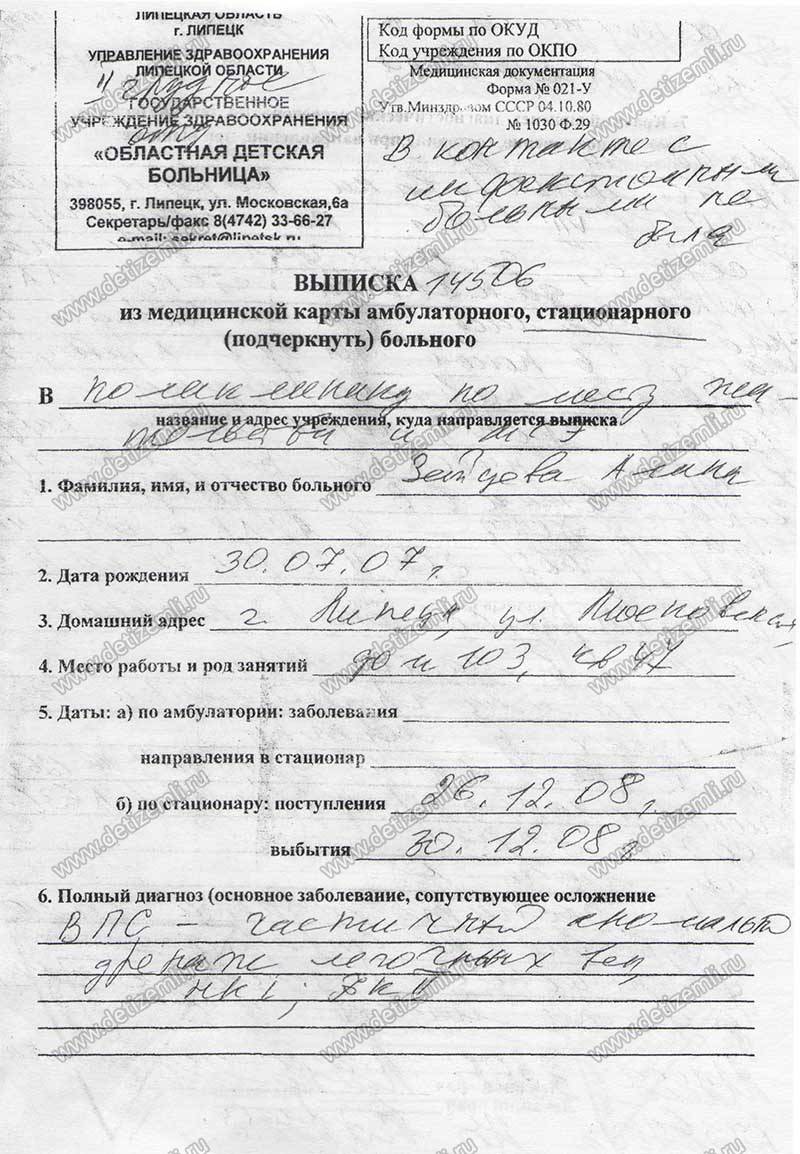 ЛИПЕЦКАЯ ОБЛАСТЬ
г. ЛИПЕЦК
УПРАВЛЕНИЕ ЗДРАВООХРАНЕНИЯ
ЛИПЕЦКОЙ ОБЛАСТИ
ГОСУДАРСТВЕННОЕ
УЧРЕЖДЕНИЕ ЗДРАВООХРАНЕНИЯ
«ОБЛАСТНАЯ ДЕТСКАЯ
БОЛЬНИЦА»
398055, г. Липецк, ул. Московская,6а
Секретарь/факс 8(4742) 33-66-27
e-mail: sekret@lipetsk.ru
Код формы по ОКУД
Код учреждения по ОКПО
Медицинская документация
Форма № 021-У
Утв.Минздравом СССР 04.10.80
№ 1030 Ф.29
В контакте с
инфекционными
больными не
была
ВЫПИСКА 14506
из медицинской карты амбулаторного, стационарного
(подчеркнуть) больного
В поликлинику по месту жи-
название и адрес учреждения, куда направляется выписка
тельства и МСЭ
1. Фамилия, имя, и отчество больного Зайцева Алина
2. Дата рождения 30.07.07 г.
3. Домашний адрес г. Липецк, ул.
4. Место работы и род занятий дом 103, кв 47
5. Даты: а) по амбулатории: заболевания
направления в стационар
б) по стационару: поступления 26.12.08 г.
выбытия 30.12.08 г
6. Полный диагноз (основное заболевание, сопутствующее осложнение
ВПС - частичный аномальный
дренаж легочных вен,
НК I; ФК II
www.detizemli.ru